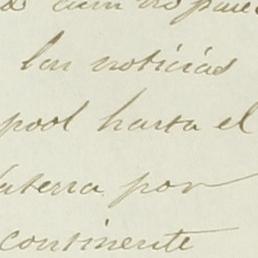 aun no pue
las noticias
pool hasta el
aterra por
continente